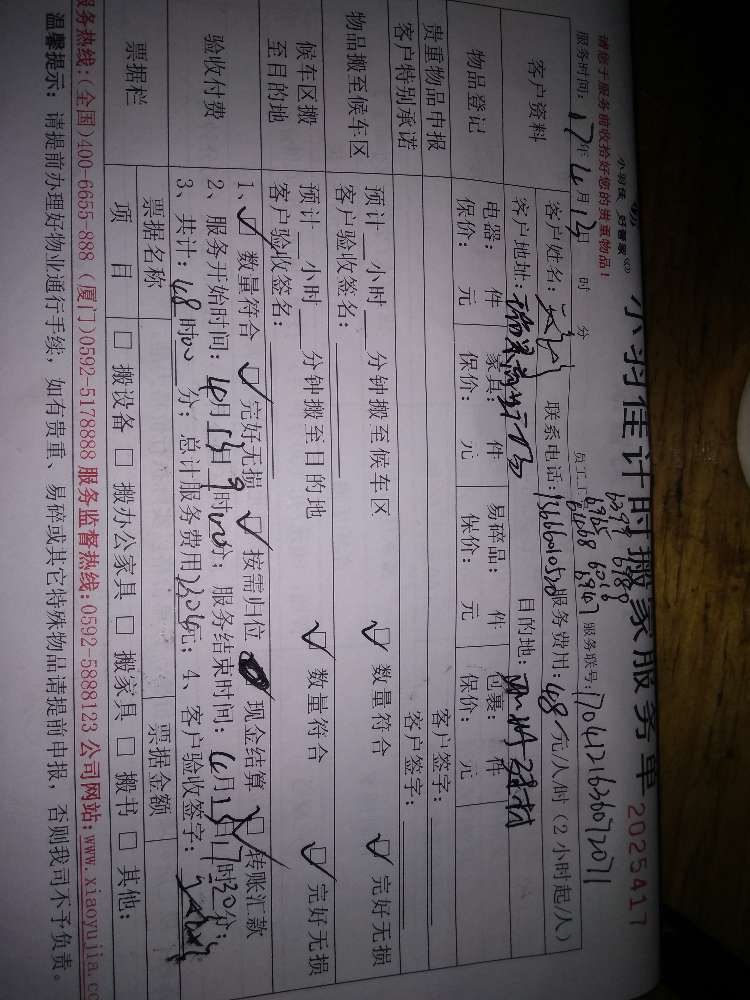 小羽佳 好管家
小羽佳计时搬家服务单 2025417
请您于服务前收拾好您的贵重物品！
服务时间：17年4月13日 时 分 员工工 服务联号：
客户资料 客户姓名： 联系电话： 服务费用：48元/人/时（2小时起/人）
客户地址： 目的地：
物品登记 电器： 件 家具： 件 易碎品： 件 包裹： 件
保价： 元 保价： 元 保价： 元 保价： 元
贵重物品申报 客户签字：
客户特别承诺 客户签字：
物品搬至候车区 预计 小时 分钟搬至候车区 数量符合 完好无损
客户验收签名：
候车区搬至目的地 预计 小时 分钟搬至目的地 数量符合 完好无损
客户验收签名：
验收付费 1、 数量符合 完好无损 按需归位 现金结算 转账汇款
2、服务开始时间：4月13日9时 分；服务结束时间：4月13日 时30分；
3、共计：48时 分；总计服务费用2304元；4、客户验收签字：
票据栏 票据名称 票据金额
项目 搬设备 搬办公家具 搬家具 搬书 其他：
服务热线:(全国)400-6655-888 (厦门)0592-5178888 服务监督热线:0592-5888123 公司网站:www.xiaoyujia.co
温馨提示：请提前办理好物业通行手续，如有贵重、易碎或其它特殊物品请提前申报，否则我司不予负责。